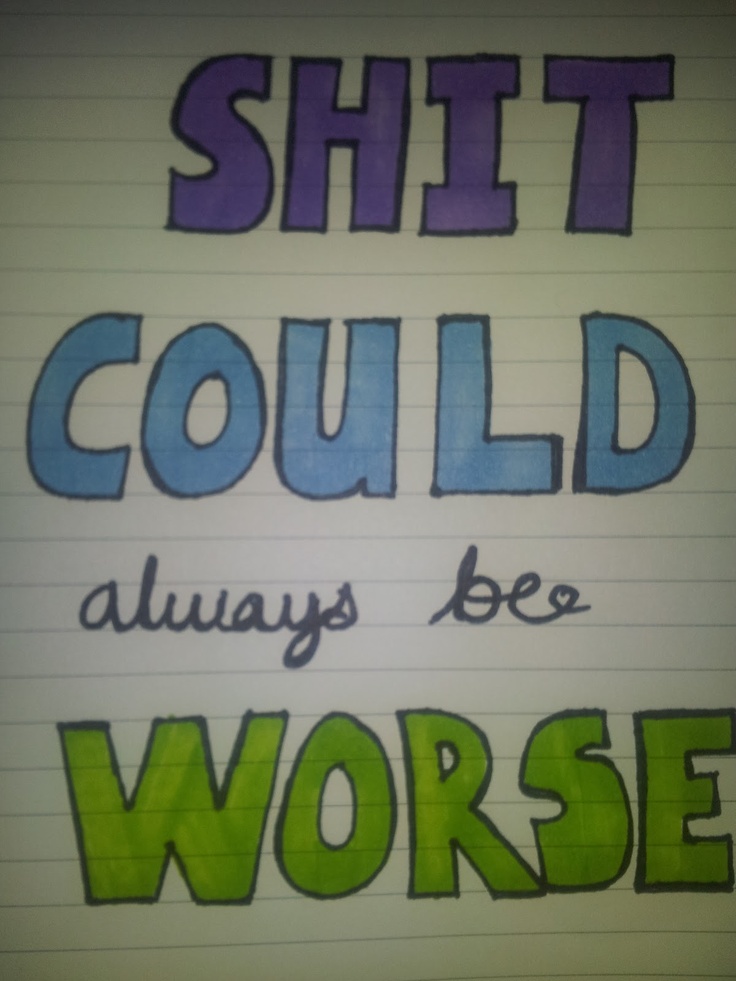 SHIT
COULD
always be
WORSE